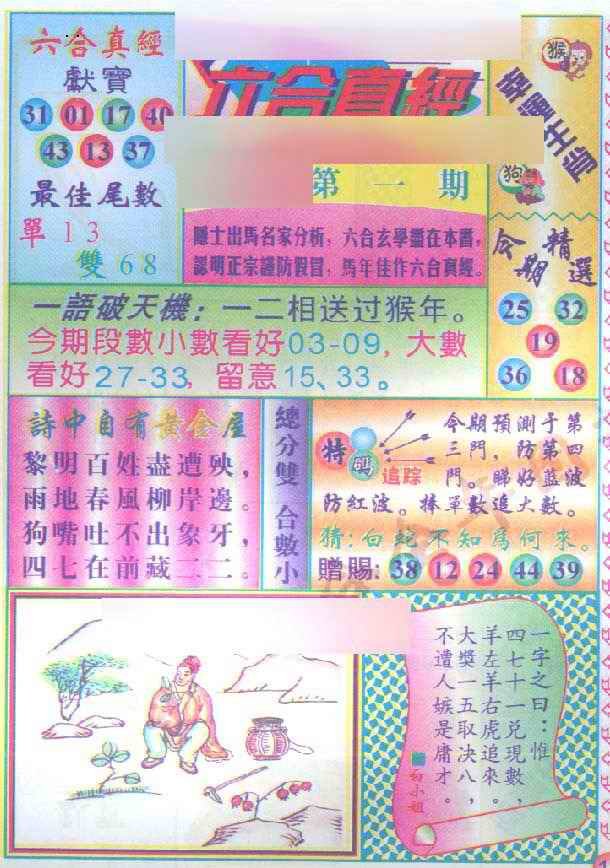 六合真經
獻寶
31 01 17 40
43 13 37
最佳尾數
單 1 3
雙 6 8
六合真經
第一期
隱士出馬名家分析，六合玄學盡在本冊，
認明正宗謹防假冒，馬年佳作六合真經。
幸運生肖
猴
狗
今期精選
25 32
19
36 18
一語破天機：一二相送过猴年。
今期段數小數看好03-09，大數
看好27-33，留意15、33。
詩中自有黃金屋
黎明百姓盡遭殃，
雨地春風柳岸邊。
狗嘴吐不出象牙，
四七在前藏二二。
總分雙 合數小
特
碼
追踪
今期預測于第
三門，防第四
門。睇好藍波
防紅波。捧單數追大數。
猜：白蛇不知為何來。
贈賜：38 12 24 44 39
一字之曰：惟
四七十一兑現數，
羊左羊右虎追來。
大獎一五取决八，
不遭人嫉是庸才。
白小姐